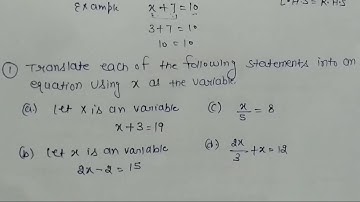 Example x+7=10
L.H.S = R.H.S
3+7 = 10
10 = 10
① Translate each of the following statements into an
equation using x as the variable
(a) let x is an variable
x+3=19
(c) x/5 = 8
(b) let x is an variable
2x-2=15
(d) 2x/3 + x = 12